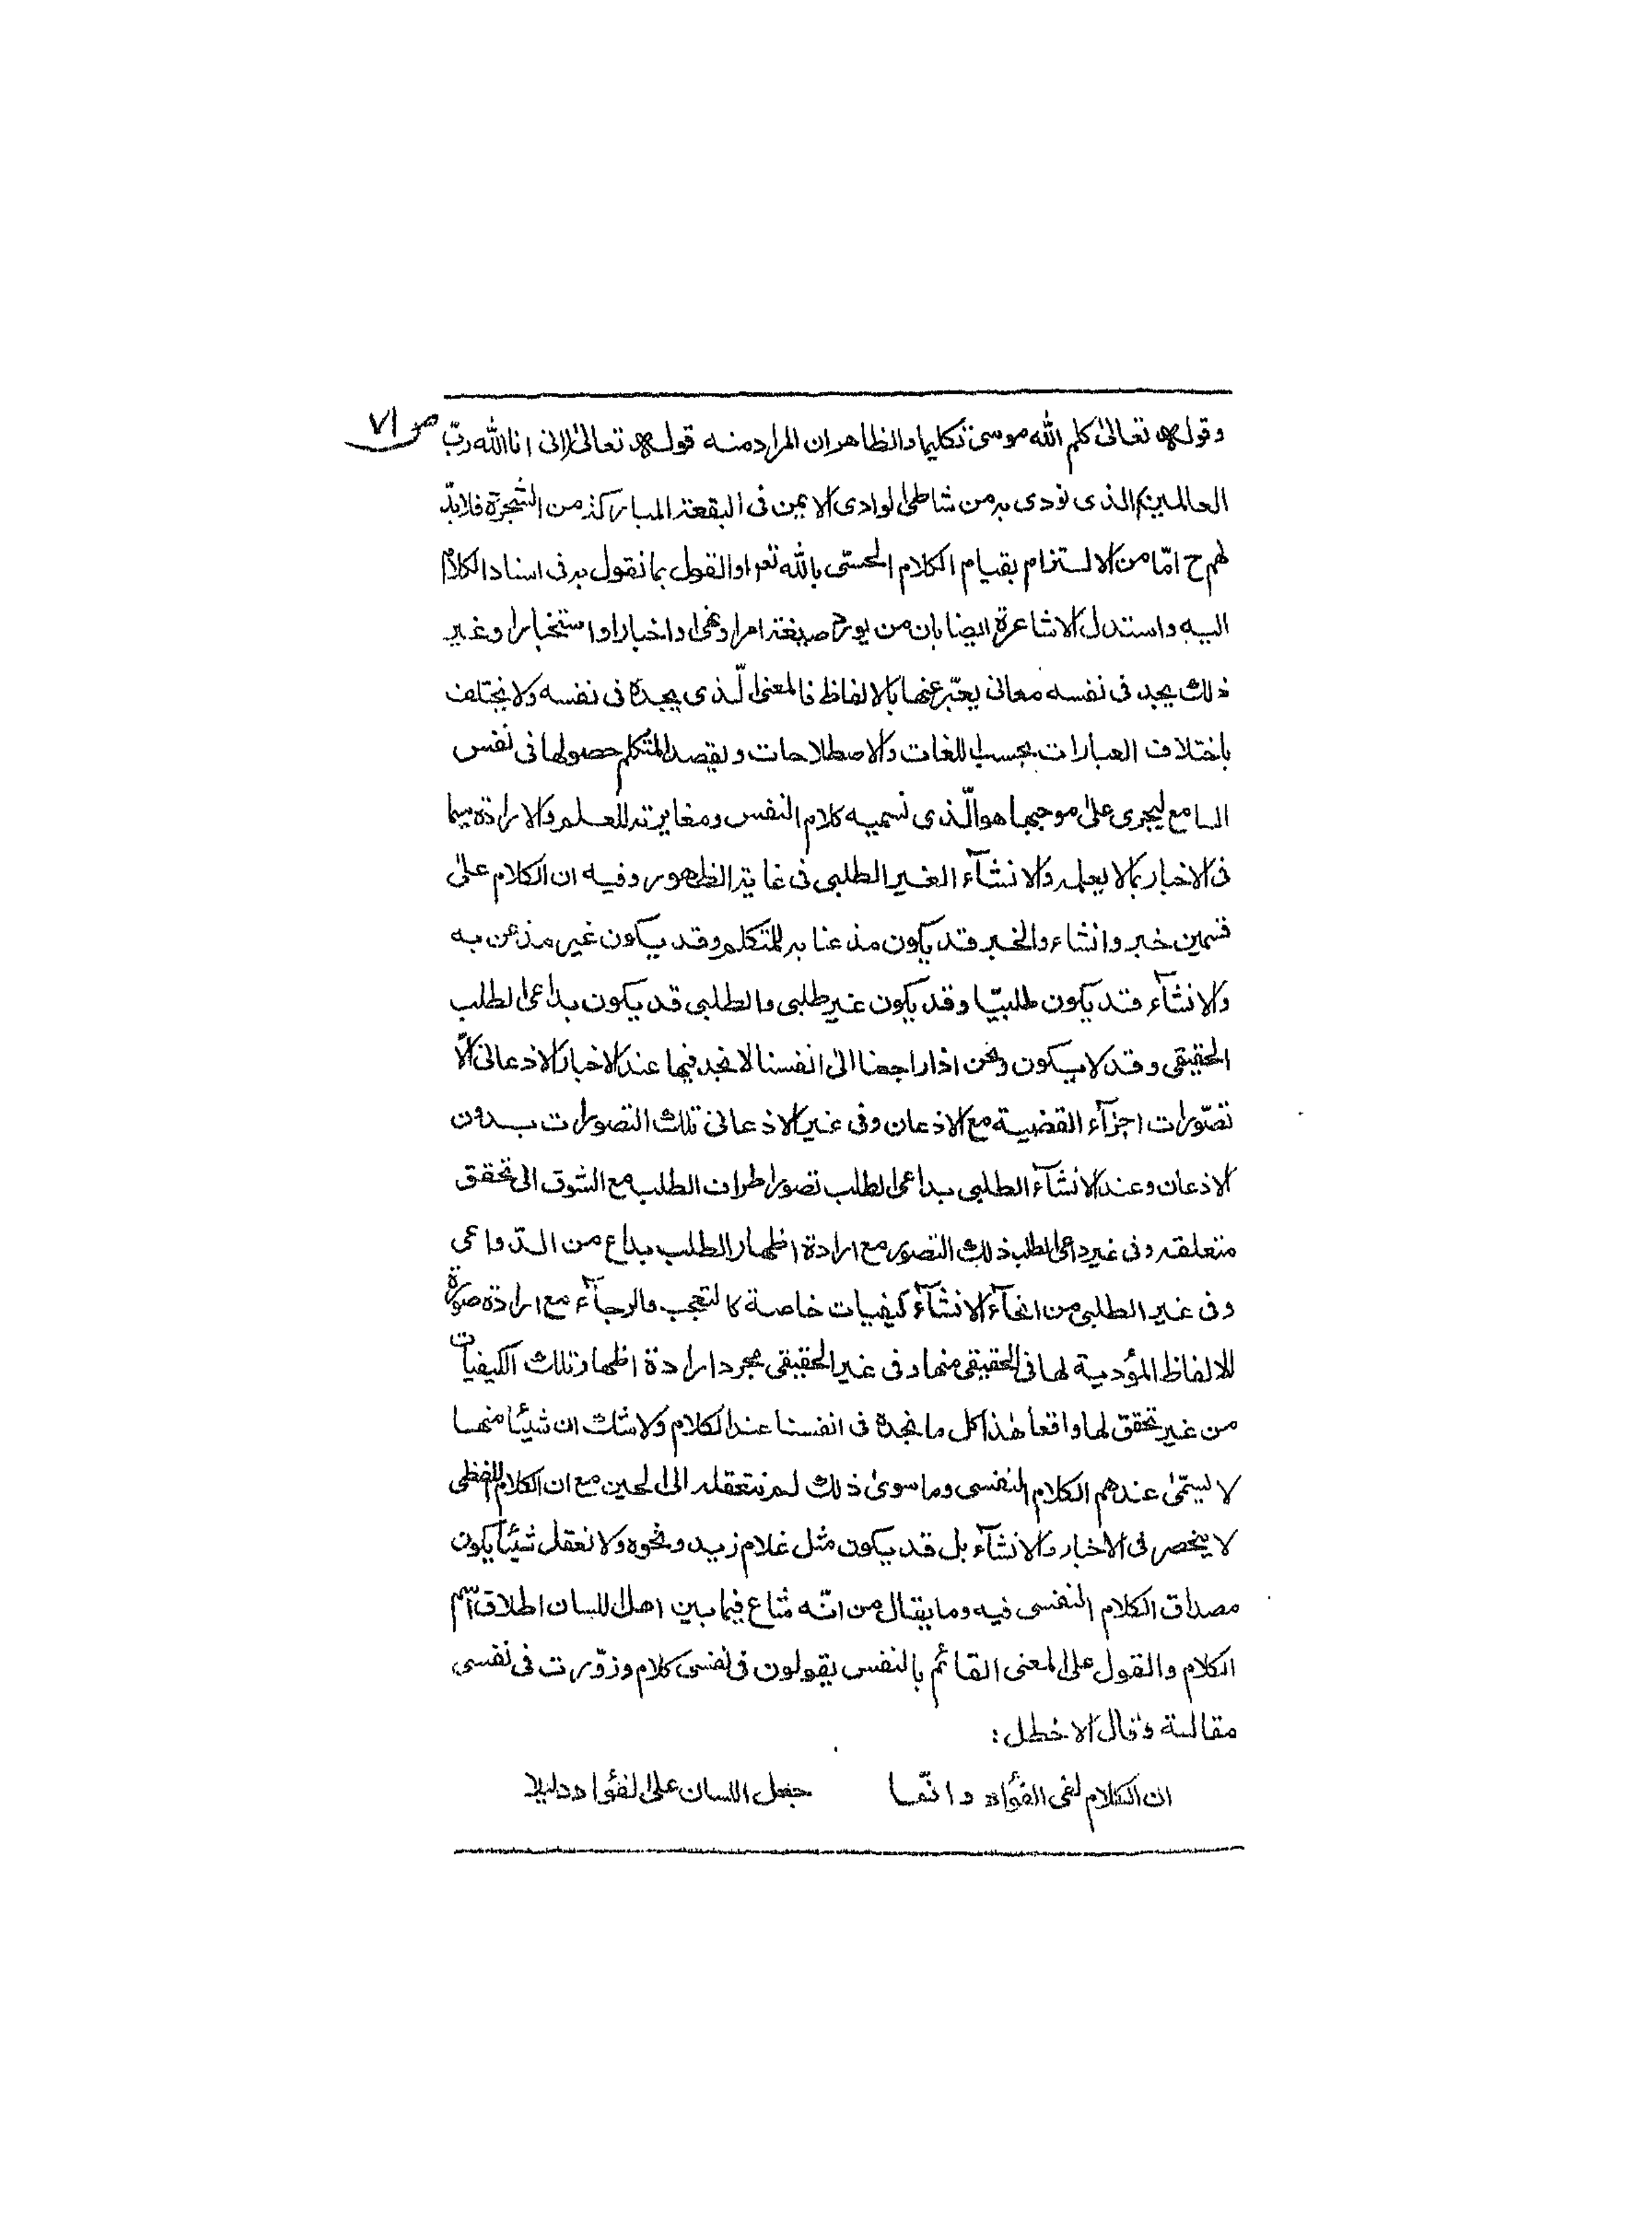 ص ٧١
وقوله تعالىٰ كلم الله موسىٰ تكليما والظاهر ان المراد منه قوله تعالىٰ انى انا الله ربّ
العالمين الذى نودى به من شاطئ الوادى الايمن فى البقعة المباركة من الشجرة فلابدّ
لهم ح امّا من الالتزام بقيام الكلام الحسّى بالله تعر او القول بما نقول به فى اسناد الكلام
اليه واستدل الاشاعرة ايضا بان من يورد صيغة امر او نهى او اخبار او استخبار او غير
ذلك يجد فى نفسه معانى يعبّر عنها بالالفاظ فالمعنى الّذى يجده فى نفسه ولا يختلف
باختلاف العبارات بحسب اللغات والاصطلاحات ويقصد المتكلم حصولها فى نفس
السامع ليجرى علىٰ موجبها هو الّذى نسميه كلام النفس ومغايرته للعلم والارادة سيما
فى الاخبار بما لا يعلمه والانشآء الغير الطلبى فى غاية الظهور وفيه ان الكلام علىٰ
قسمين خبر وانشاء والخبر قد يكون مذعنا به للمتكلم وقد يكون غير مذعن به
والانشآء قد يكون طلبيّا وقد يكون غير طلبى والطلبى قد يكون بداعى الطلب
الحقيقى وقد لا يكون ونحن اذا راجعنا الىٰ انفسنا لا نجد فيها عند الاخبار الاذعانى الّا
تصّورات اجزآء القضية مع الاذعان وفى غير الاذعانى تلك التصورات بدون
الاذعان وعند الانشآء الطلبى بداعى الطلب تصور اطراف الطلب مع الشوق الى تحقق
متعلقه وفى غير داعى الطلب ذلك التصور مع ارادة اظهار الطلب بداع من الدّواعى
وفى غير الطلبى من انحآء الانشآء كيفيات خاصة كالتعجب والرجآء مع ارادة صورة
الالفاظ المؤدية لها فى الحقيقى منها وفى غير الحقيقى مجرد ارادة اظهار تلك الكيفيات
من غير تحقق لها واقعا هٰذا كل ما نجده فى انفسنا عند الكلام ولا شك ان شيئا منها
لا يسمّىٰ عندهم الكلام النفسى وما سوىٰ ذلك لم نتعقله الى الحين مع ان الكلام اللفظى
لا ينحصر فى الاخبار والانشآء بل قد يكون مثل غلام زيد ونحوه ولا نعقل شيئا يكون
مصداق الكلام النفسى فيه وما يقال من انّه شاع فيما بين اهل اللسان اطلاق اسم
الكلام والقول على المعنى القائم بالنفس يقولون فى نفسى كلام وزوّرت فى نفسى
مقالة وقال الاخطل:
ان الكلام لفى الفؤاد وانّما جعل اللسان على الفؤاد دليلا